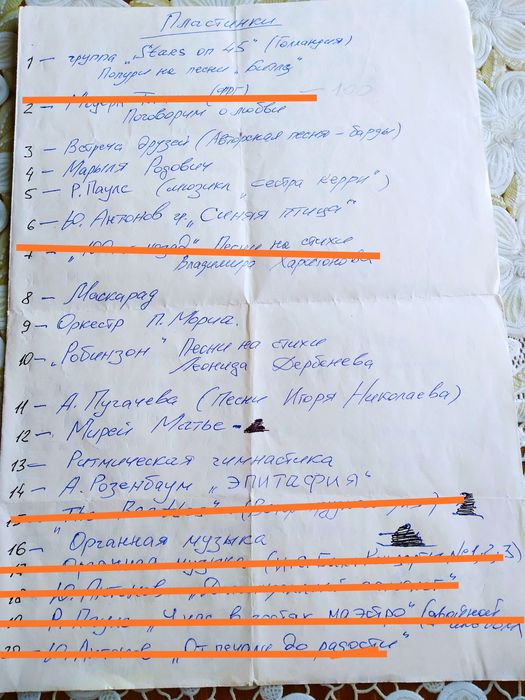 Пластинки
1 – группа "Stars on 45" (Голландия)
Попури на песни "Битлз"
2 – (ФРГ) – 100
Поговорим о любви
3 – Встреча друзей (Авторская песня – барды)
4 – Марыля Родович
5 – Р. Паулс (мюзикл "Сестра Керри")
6 – Ю. Антонов гр. "Синяя птица"
7 – Песни на стихи
Владимира Харитонова
8 – Маскарад
9 – Оркестр П. Мориа.
10 – "Робинзон" Песни на стихи
Леонида Дербенева
11 – А. Пугачева (Песни Игоря Николаева)
12 – Мирей Матье –
13 – Ритмическая гимнастика
14 – А. Розенбаум "ЭПИТАФИЯ"
15 –
16 – Органная музыка
№1,2,3)
Ю. Антонов
Р. Паулс маэстро"
Ю. Антонов "От печали до радости"